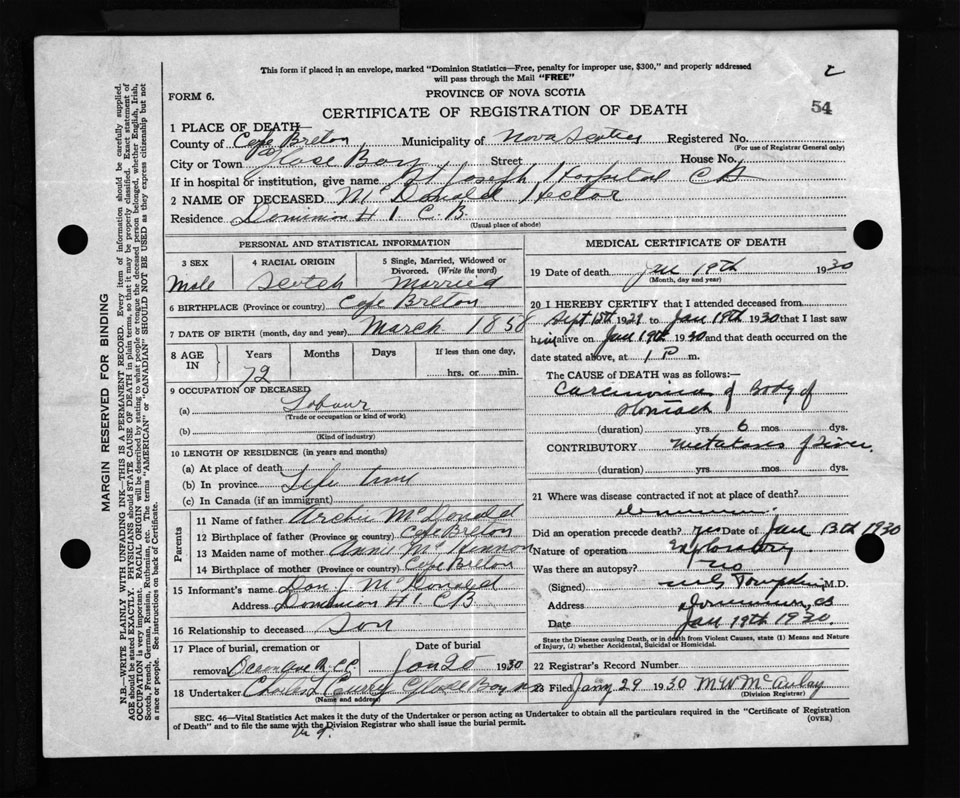 This form if placed in an envelope, marked "Dominion Statistics—Free, penalty for improper use, $300," and properly addressed
will pass through the Mail "FREE"
FORM 6.
PROVINCE OF NOVA SCOTIA
54
CERTIFICATE OF REGISTRATION OF DEATH
1 PLACE OF DEATH—
County of Cape Breton Municipality of Nova Scotia Registered No.
(For use of Registrar General only)
City or Town Glace Bay Street House No.
If in hospital or institution, give name St Joseph Hospital
2 NAME OF DECEASED McDonald Hector
Residence Dominion # 1 C.B.
(Usual place of abode)
PERSONAL AND STATISTICAL INFORMATION
3 SEX 4 RACIAL ORIGIN 5 Single, Married, Widowed or
Divorced. (Write the word)
Male Scotch Married
6 BIRTHPLACE (Province or country) Cape Breton
7 DATE OF BIRTH (month, day and year) March 1858
8 AGE IN Years Months Days If less than one day,
72 hrs. or min.
9 OCCUPATION OF DECEASED
(a) Labour
(Trade or occupation or kind of work)
(b)
(Kind of industry)
10 LENGTH OF RESIDENCE (in years and months)
(a) At place of death
(b) In province Life time
(c) In Canada (if an immigrant)
Parents
11 Name of father Archie McDonald
12 Birthplace of father (Province or country) Cape Breton
13 Maiden name of mother Annie McKinnon
14 Birthplace of mother " " Cape Breton
15 Informant's name Dan J. McDonald
Address Dominion # 1. CB
16 Relationship to deceased Son
17 Place of burial, cremation or Date of burial
removal Jan 20 1930
18 Undertaker Charles Curry Glace Bay
(Name and address)
MEDICAL CERTIFICATE OF DEATH
19 Date of death Jan 19th 1930
(Month, day and year)
20 I HEREBY CERTIFY that I attended deceased from
Sept 15th 1929 to Jan 19th 1930 that I last saw
him alive on Jan 19th 1930 and that death occurred on the
date stated above, at 1 P m.
The CAUSE of DEATH was as follows:—
Carcinoma of Body of
Stomach
(duration) yrs 6 mos dys.
CONTRIBUTORY Metatases of liver.
(duration) yrs. mos. dys.
21 Where was disease contracted if not at place of death?
Dominion
Did an operation precede death? yes Date of Jan 13th 1930
Nature of operation Exploratory
Was there an autopsy? no
(Signed) M.D.
Address Dominion, CB
Date Jan 19th 1930.
State the Disease causing Death, or in death from Violent Causes, state (1) Means and Nature
of Injury, (2) whether Accidental, Suicidal or Homicidal.
22 Registrar's Record Number
23 Filed Jany 29 1930 M W McAulay
(Division Registrar)
SEC. 46—Vital Statistics Act makes it the duty of the Undertaker or person acting as Undertaker to obtain all the particulars required in the "Certificate of Registration
of Death" and to file the same with the Division Registrar who shall issue the burial permit.
(OVER)
MARGIN RESERVED FOR BINDING
N.B.—WRITE PLAINLY WITH UNFADING INK—THIS IS A PERMANENT RECORD. Every item of information should be carefully supplied.
AGE should be stated EXACTLY. PHYSICIANS should STATE CAUSE OF DEATH in plain terms, so that it may be properly classified. Exact statement of
OCCUPATION is very important. RACIAL ORIGIN will be described by stating to what people or tongue the deceased person belonged, whether English, Irish,
Scotch, French, German, Russian, Ruthenian, etc. The terms "AMERICAN" or "CANADIAN" SHOULD NOT BE USED as they express citizenship but not
a race or people. See instructions on back of Certificate.